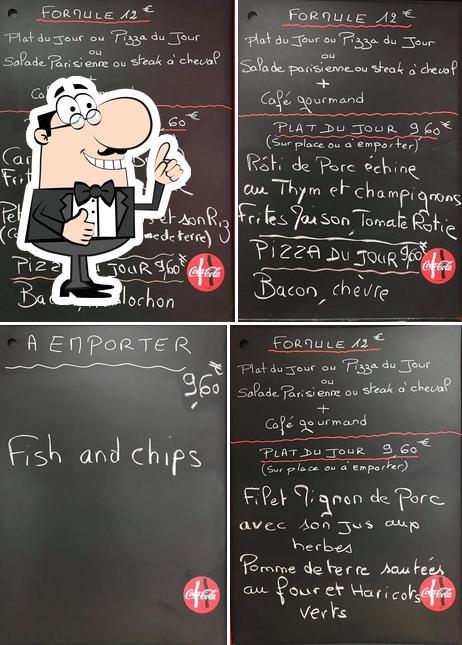 FORMULE 12 €
Plat du Jour ou Pizza du Jour
ou
Salade Parisienne ou steak à cheval
+
60 €
Frit
et son Riz
me de terre)
PIZZ DU JOUR 9,60 €
Ba lochon
Coca-Cola
FORMULE 12 €
Plat du Jour ou Pizza du Jour
ou
Salade parisienne ou steak à cheval
+
Café gourmand
PLAT DU JOUR 9,60 €
(Sur place ou à emporter)
Rôti de Porc échine
au Thym et champignons
Frites Maison, Tomate Rôtie
PIZZA DU JOUR 9,60 €
Bacon, chèvre
Coca-Cola
A EMPORTER
9,60 €
Fish and chips
Coca-Cola
FORMULE 12 €
Plat du Jour ou Pizza du Jour
ou
Salade Parisienne ou steak à cheval
+
Café gourmand
PLAT DU JOUR 9,60 €
(Sur place ou à emporter)
Filet Mignon de Porc
avec son jus aux
herbes
Pomme de terre sautées
au four et Haricots
verts
Coca-Cola